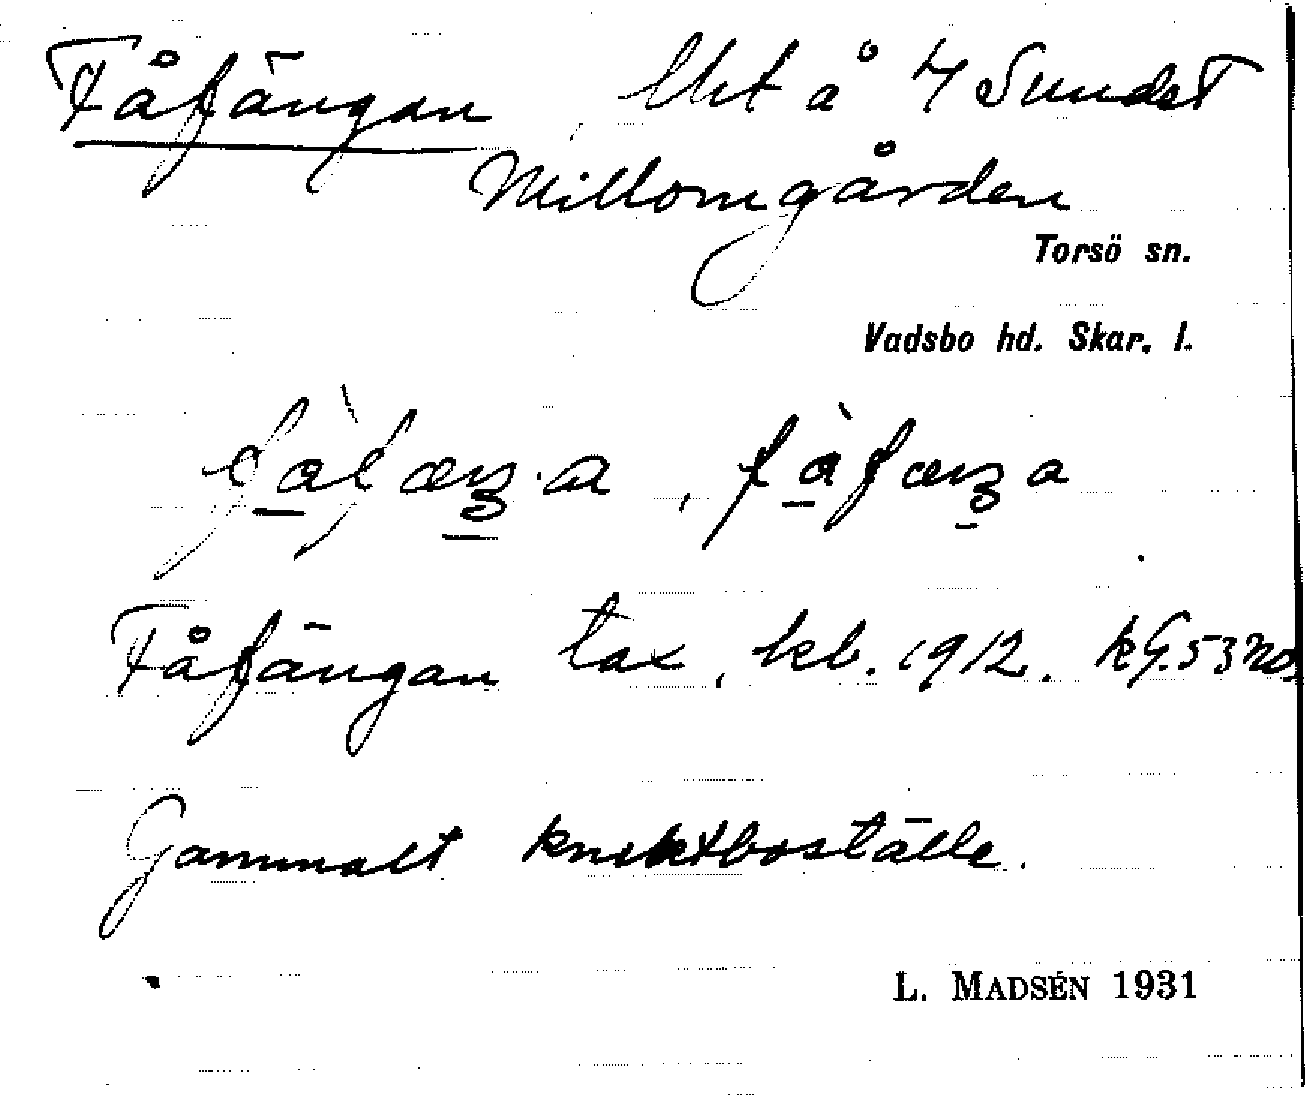 Fåfängan, lht å 4 Sundet
Millomgården
Torsö sn.
Vadsbo hd. Skar. l.
Fåfängan tax, kb. 1912.
Gammalt knektboställe.
L. MADSÉN 1931